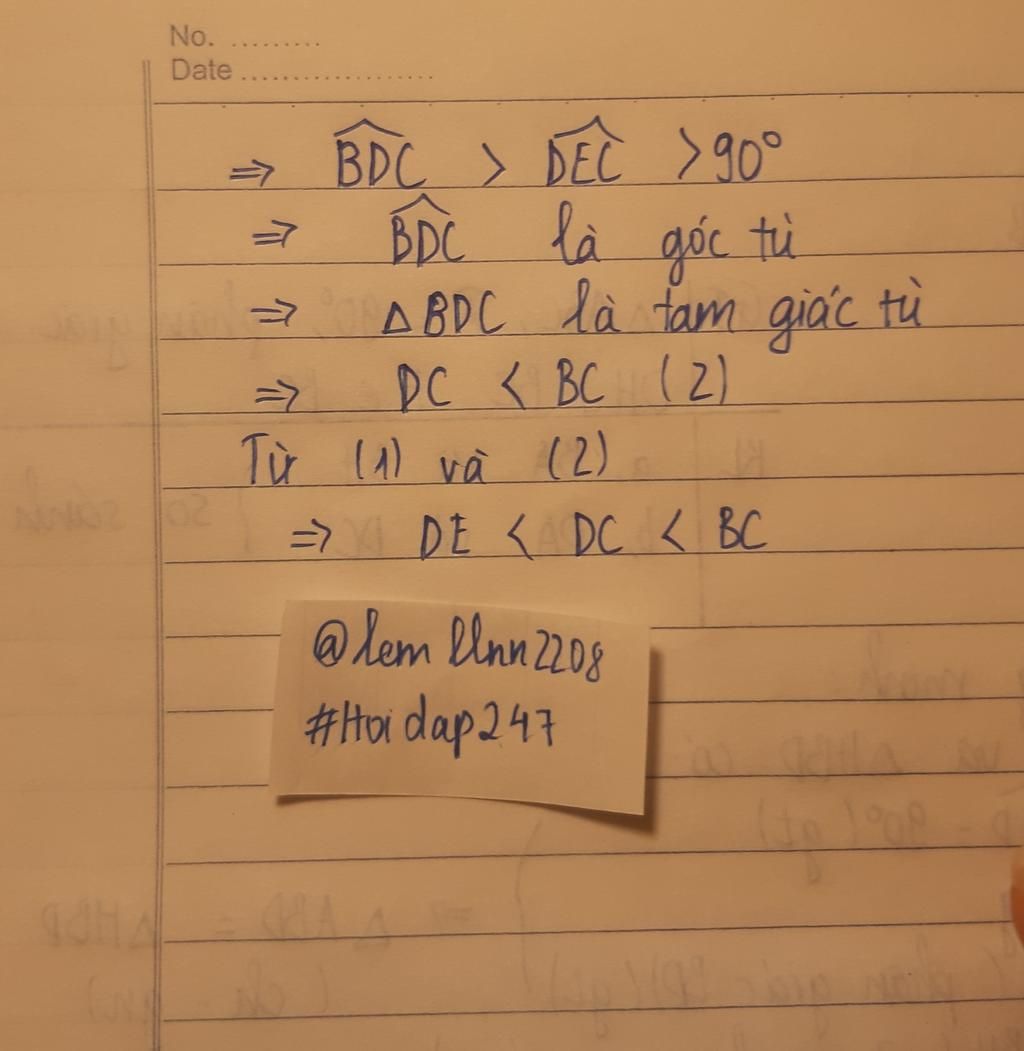 No. .........
Date ...................
⇒ \widehat{BDC} > \widehat{DEC} > 90°
⇒ \widehat{BDC} là góc tù
⇒ △BDC là tam giác tù
⇒ DC < BC (2)
Từ (1) và (2)
⇒ DE < DC < BC
#Hoidap247